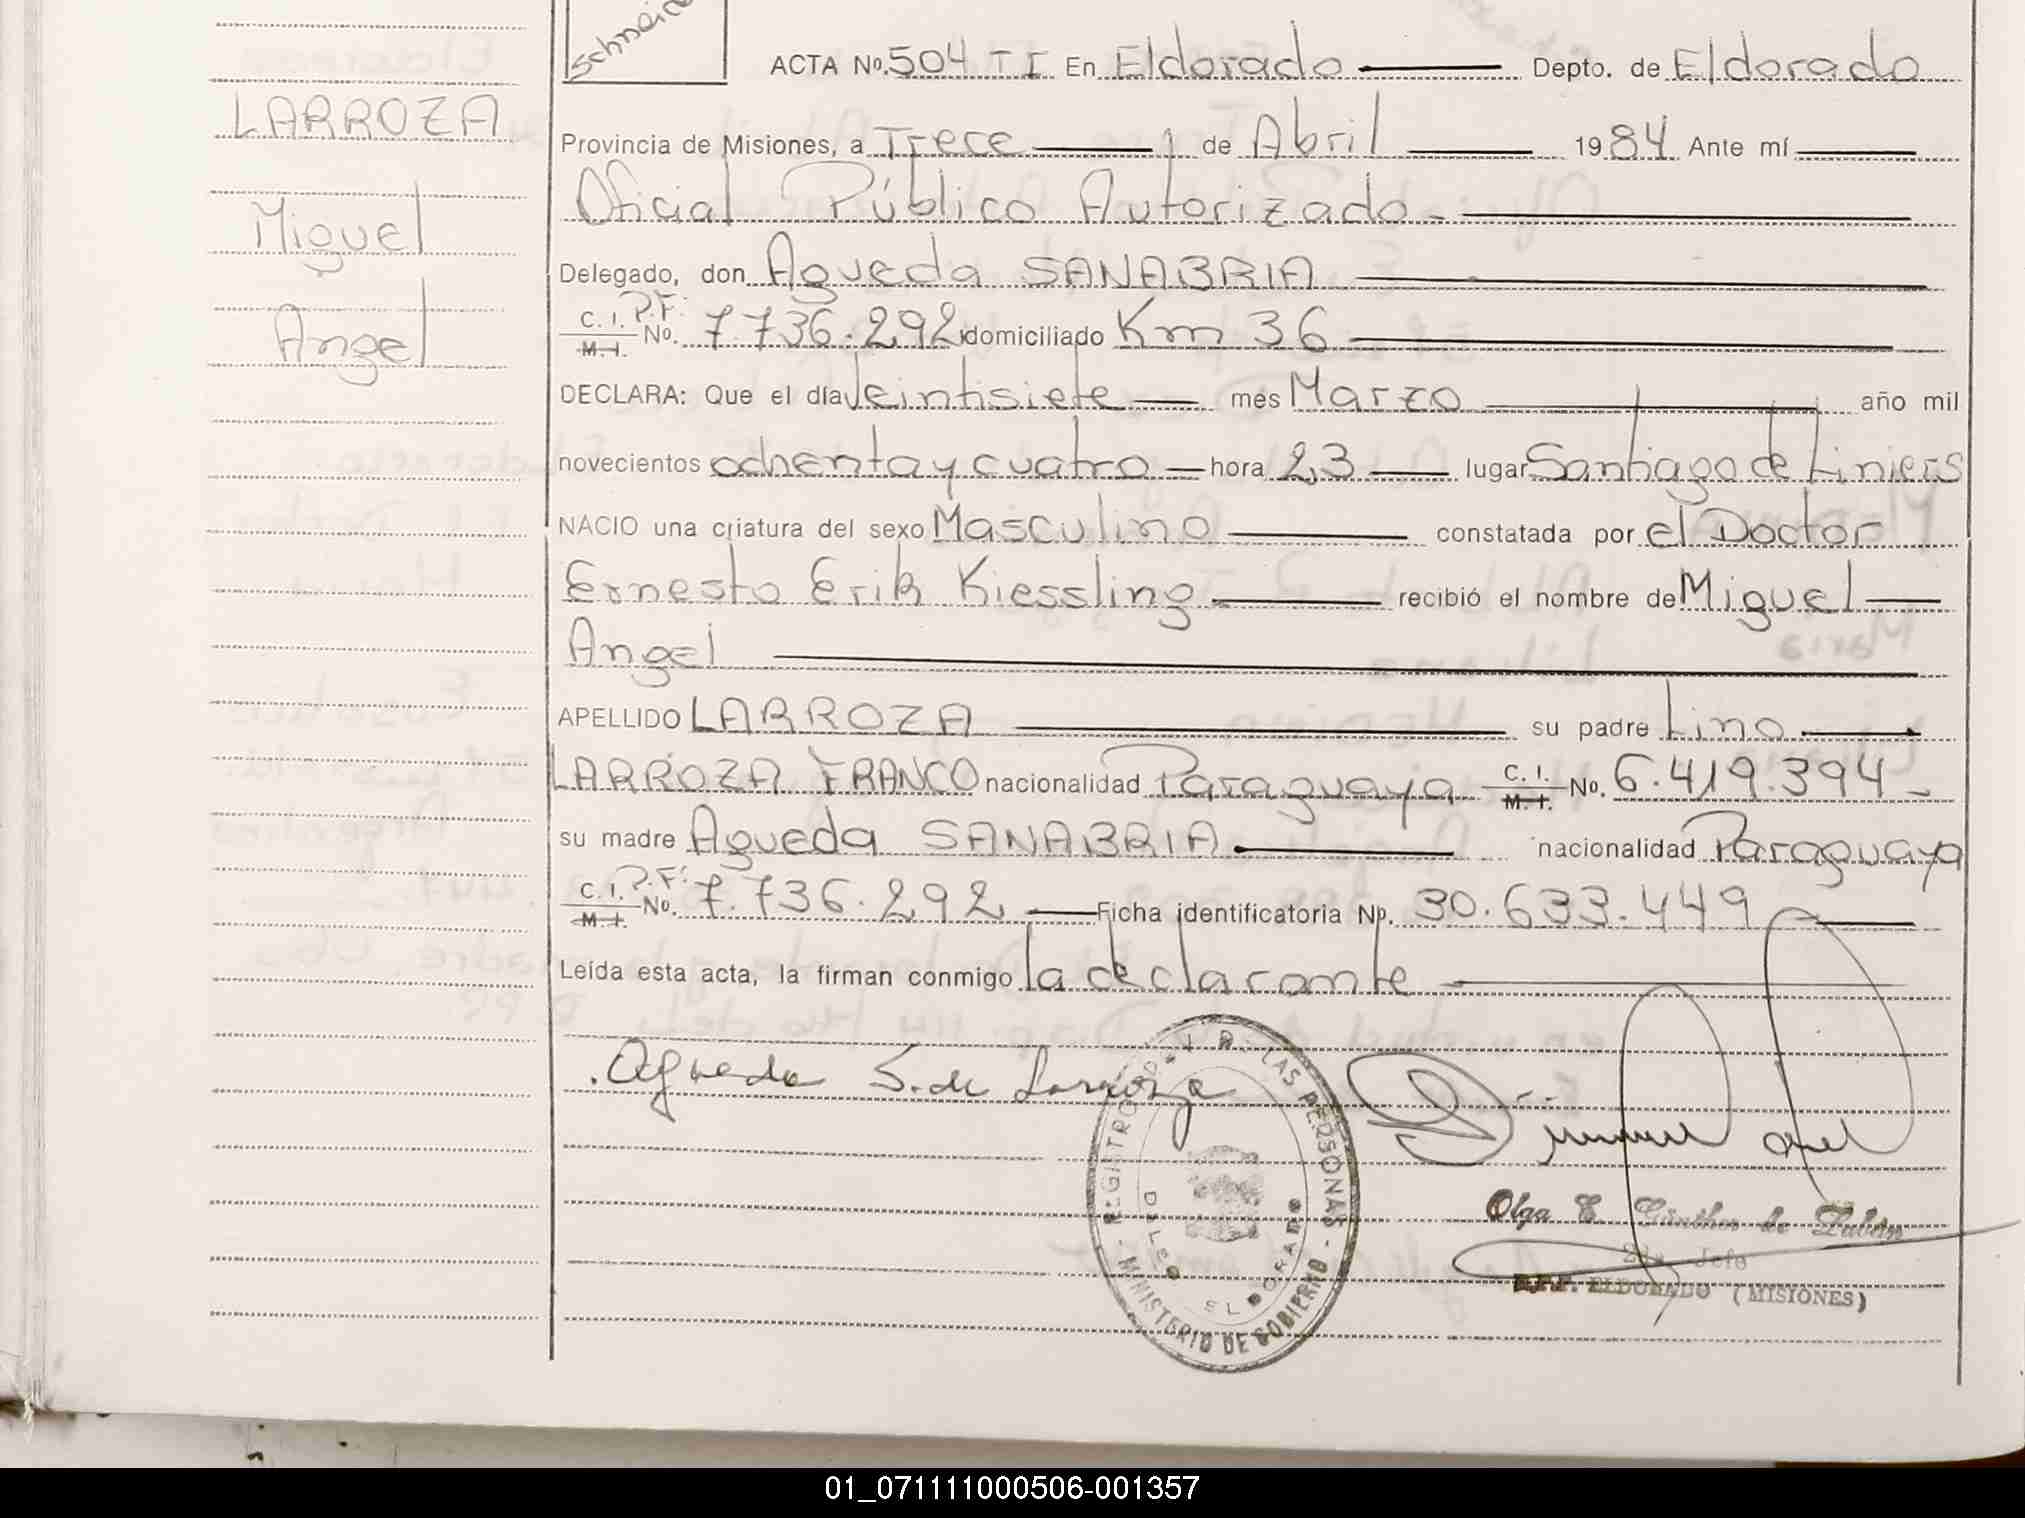 Schneider
ACTA Nº. 504 T I En Eldorado Depto. de Eldorado
LARROZA
Miguel
Angel
Provincia de Misiones, a Trece de Abril 1984 Ante mí
Oficial Público Autorizado.
Delegado, don Agueda SANABRIA
C. I. P.F.
M. I. No. 7.736.292 domiciliado Km 36
DECLARA: Que el día Veintisiete mes Marzo año mil
novecientos ochenta y cuatro hora 23 lugar Santiago de Liniers
NACIO una criatura del sexo Masculino constatada por el Doctor
Ernesto Erik Kiessling. recibió el nombre de Miguel
Angel
APELLIDO LARROZA su padre Lino
LARROZA FRANCO nacionalidad Paraguaya C. I. M. I. No. 6.419.394
su madre Agueda SANABRIA nacionalidad Paraguaya
C. I. P.F.
M. I. No. 7.736.292 Ficha identificatoria No. 30.633.449
Leída esta acta, la firman conmigo la declarante
Agueda S. de Larroza
REGISTRO LAS PERSONAS - MINISTERIO DE GOBIERNO
DELEG ELDORADO
Olga E. Günther de
2da Jefe
ELDORADO (MISIONES)
01_071111000506-001357